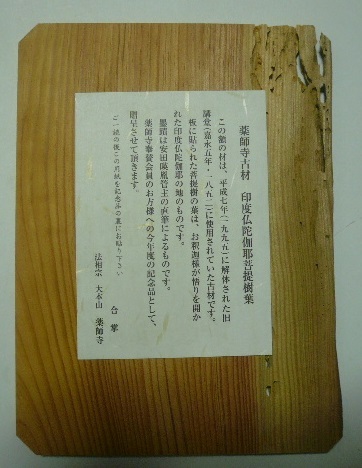 薬師寺古材　印度仏陀伽耶菩提樹葉
この額の材は、平成七年（一九九五）に解体された旧
講堂（嘉永五年・一八五二）に使用されていた古材です。
板に貼られた菩提樹の葉は、お釈迦様が悟りを開か
れた印度仏陀伽耶の地のものです。
墨蹟は安田暎胤管主の直筆によるものです。
薬師寺奉賛会員のお方様への今年度の記念品として、
贈呈させて頂きます。
合掌
ご一緒の後この用紙を記念品の裏にお貼り下さい
法相宗　大本山　薬師寺